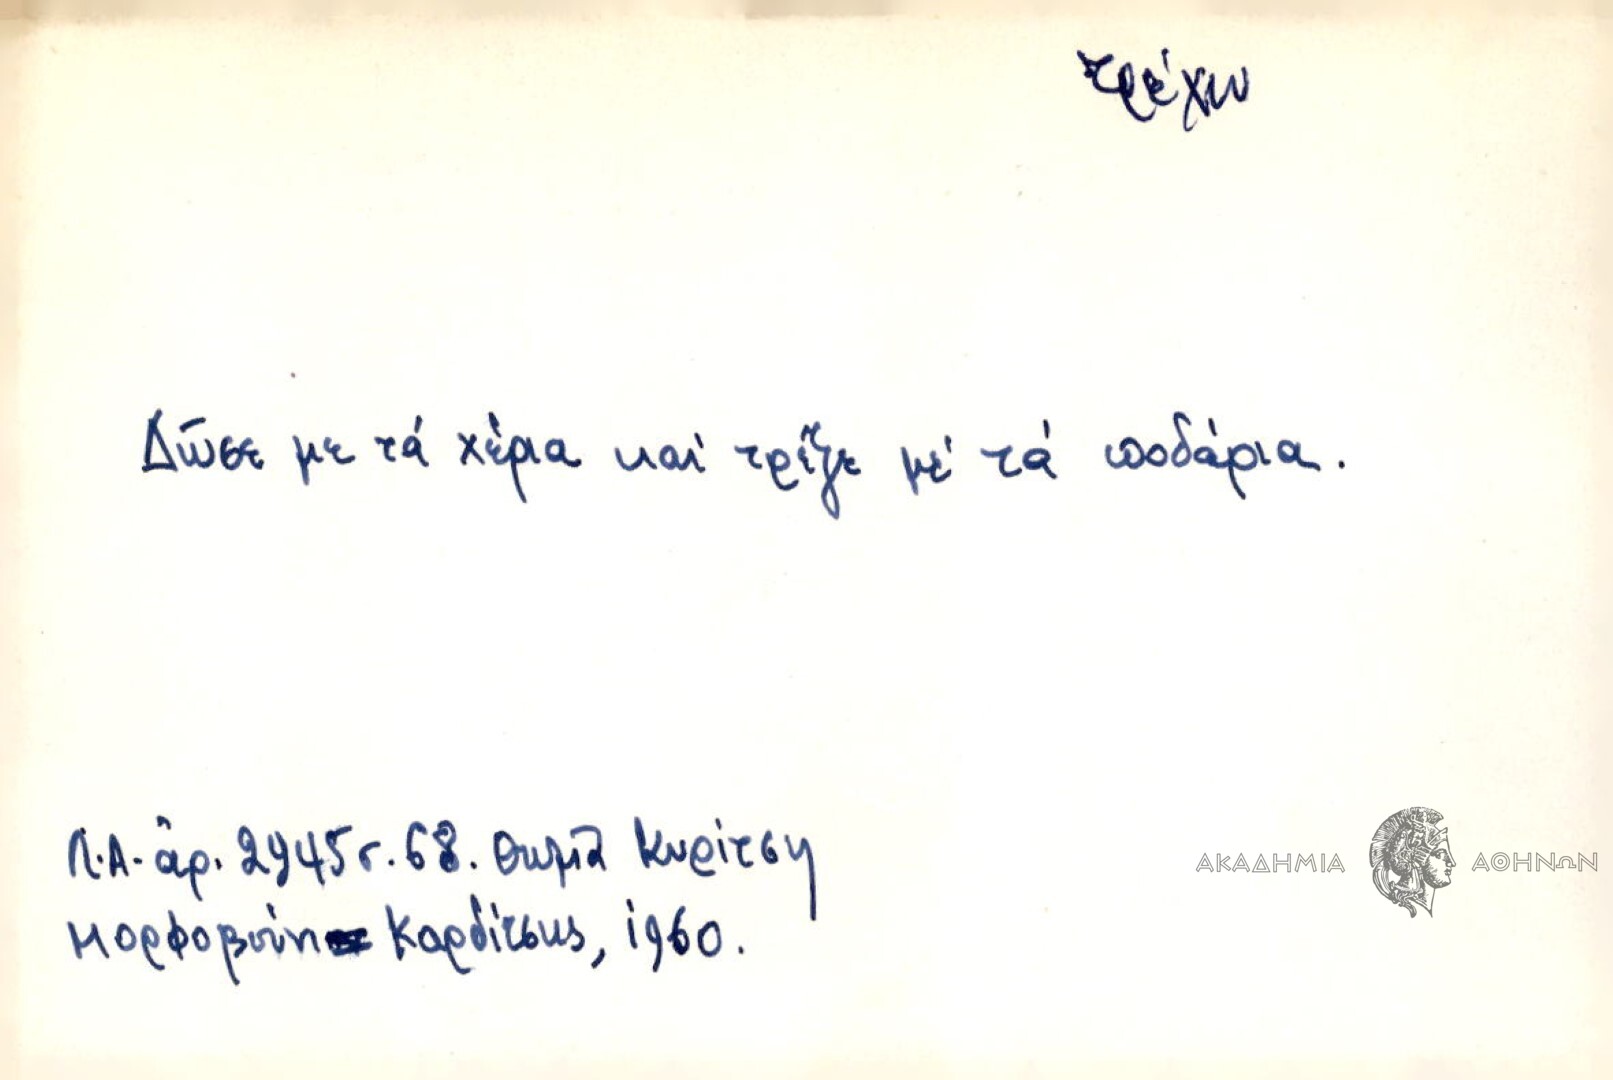 τρέχω
Δῶσε με τά χέρια καί τρέξε μέ τά ποδάρια.
Λ.Α. ἀρ. 2945 σ. 68. Θωμᾶ Κυρίτση
Μορφοβούνι Καρδίτσης, 1960.
ΑΚΑΔΗΜΙΑ ΑΘΗΝΩΝ